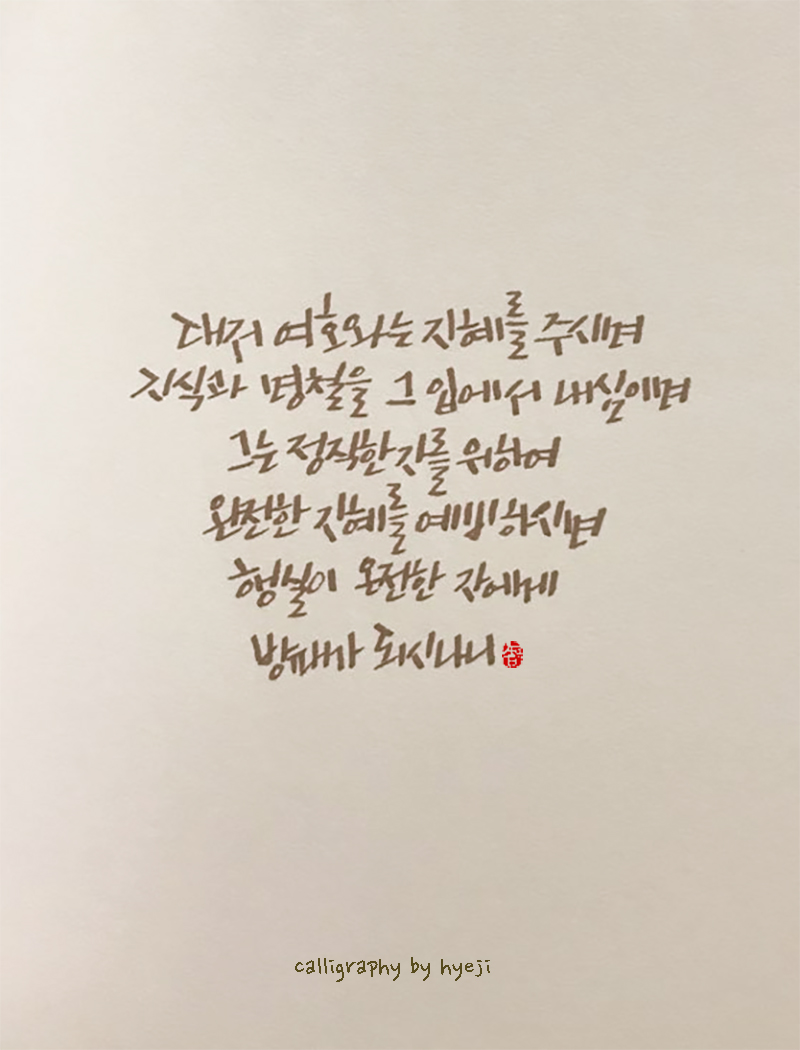 대저 여호와는 지혜를 주시며
지식과 명철을 그 입에서 내심이며
그는 정직한 자를 위하여
완전한 지혜를 예비하시며
행실이 온전한 자에게
방패가 되시나니
calligraphy by hyeji